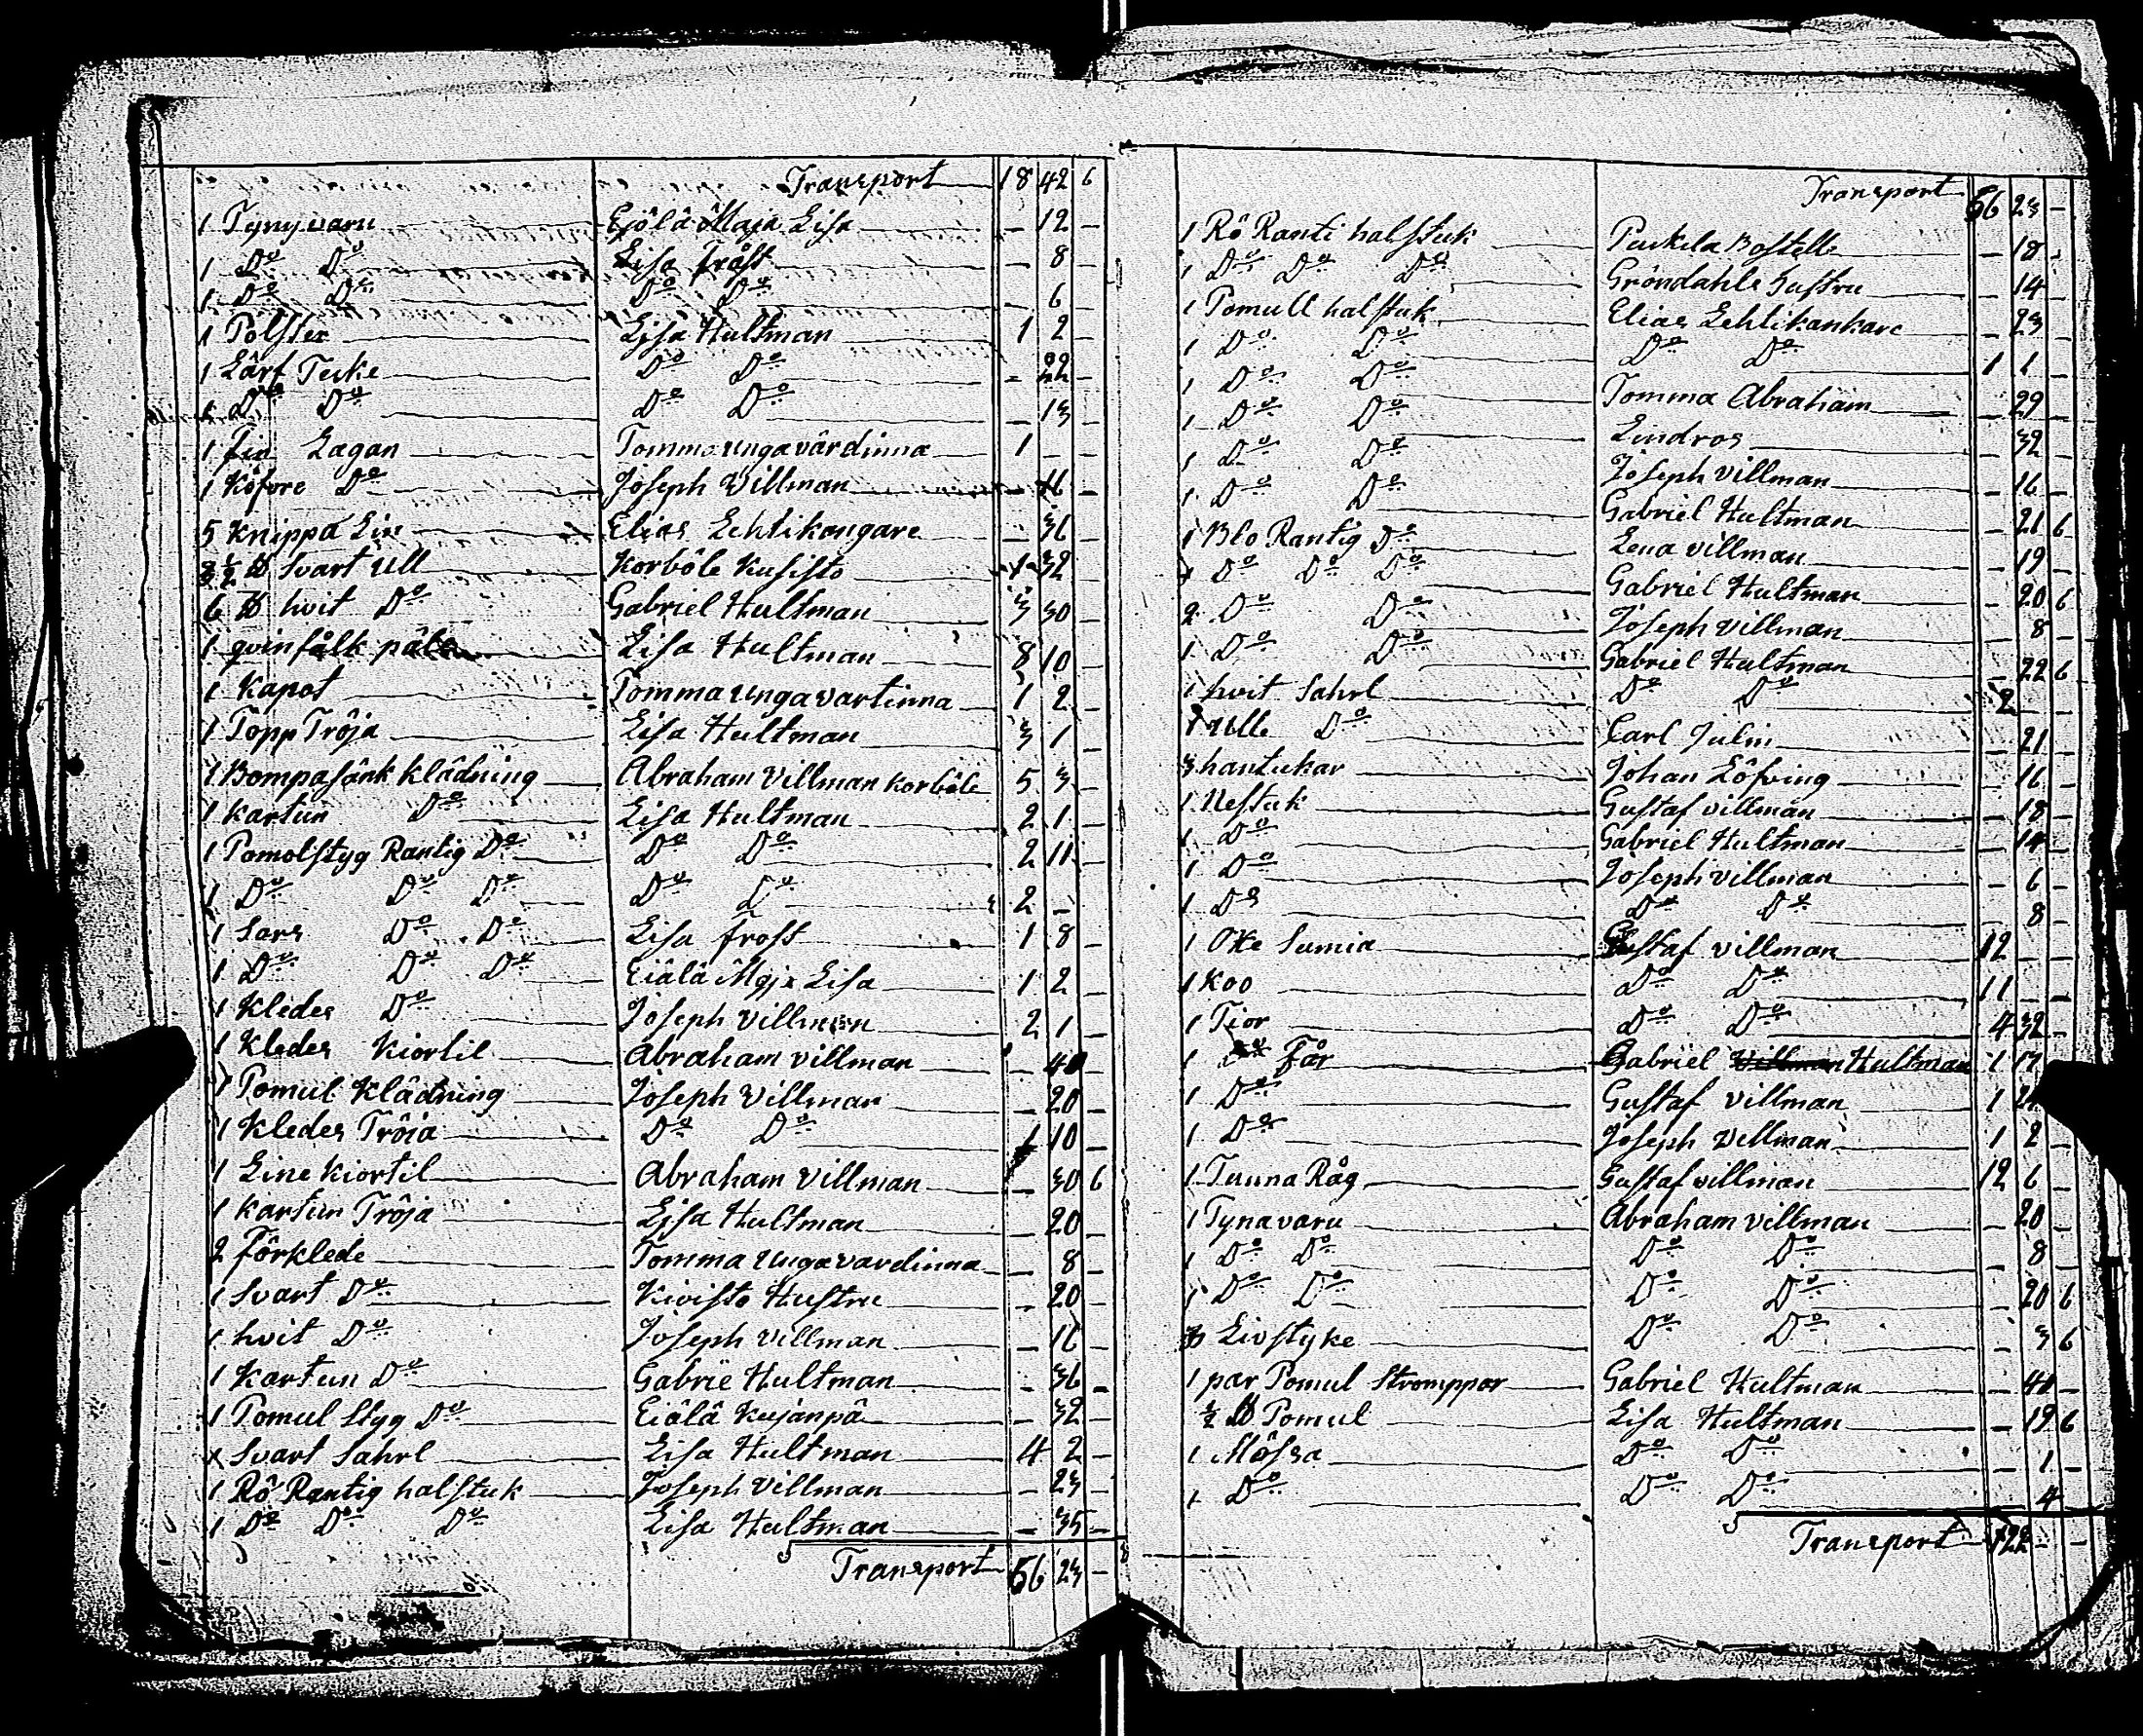 Transport 18 42 6
1 Tynyvaru Ejôlâ Maja Lisa — 12 —
1 Do Do Lisa Fråst — 8 —
1 Do Do Do Do — 6 —
1 Polster Lisa Hultman 1 2 —
1 Lârf Teke Do Do — 22 —
1 Do Do Do Do — 13 —
1 fin Lagan Tomma unga vârdinna 1 — —
1 Kôfore Do Joseph Villman — 16 —
5 Knippa Lin Elias Lehtikangare — 36 —
½ ℔ Svart Ull Korbôle Kusisto 1 32 —
6 ℔ hvit Do Gabriel Hultman 3 30 —
1 qvinfålk Lisa Hultman 8 10 —
1 Kapot Tomma unga vartinna 1 2 —
1 Topp Trôja Lisa Hultman 3 1 —
1 Bompasänk klâdning Abraham Villman korbôle 5 3 —
1 Kartun Do Lisa Hultman 2 1 —
1 Pomolstyg Rantig Do Do Do 2 11 —
1 Do Do Do Do Do 2 —
1 Sars Do Do Lisa Frost 1 8 —
1 Do Do Do Eiâlâ Maja Lisa 1 2 —
1 Kledes Do Joseph Villman 2 1 —
1 Kledes Kiortil Abraham villman — 40 —
1 Pomul Klâdning Joseph Villman — 20 —
1 Kledes Trôia Do Do 1 10 —
1 Line Kiortil Abraham Villman — 30 6
1 Kartun Trôja Lisa Hultman — 20 —
2 Fôrklede Tomma Unga vardinna — 8 —
1 Svart Do Kivisto Hustru — 20 —
1 hvit Do Joseph Villman — 16 —
1 Kartun Do Gabrie Hultman — 36 —
1 Pomul Styg Do Eiâlâ Kujanpâ — 32 —
1 Svart Sahrl Lisa Hultman 4 2 —
1 Rô Rantig halstuk Joseph Villman — 23 —
1 Do Do Do Lisa Hultman — 35 —
Transport 56 23 —
Transport 56 23 —
1 Rô Ranti halstuk Puikila Bostelle — 18 —
1 Do Do Do Grôndahls Hustru — 14 —
1 Pomull halstuk Elias Lehtikankare — 23
1 Do Do Do Do 1 1 —
1 Do Do Tomma Abraham — 29
1 Do Do Lindros — 32 —
1 Do Do Joseph Villman — 16 —
1 Do Do Gabriel Hultman — 21 6
1 Blo Rantig Do Lena Villman — 19 —
1 Do Do Do Gabriel Hultman — 20 6
2 Do Do Joseph Villman — 8 —
1 Do Do Gabriel Hultman — 22 6
1 hvit Sahrl Do Do 2 — —
1 Ulle Do Carl Julin — 21 —
3 hantukar Johan Lôfving — 16 —
1 Nestuk Gustaf Villman — 18 —
1 Do Gabriel Hultman — 14 —
1 Do Joseph Villman — 6 —
1 Do Do Do 8 —
1 Oke Sumia Gustaf Villman 12 — —
1 Koo Do Do 11 — —
1 Tior Do Do 4 32 —
1 Får Gabriel Villman Hultman 1 17
1 Do Gustaf Villman 1
1 Do Joseph Villman 1 2
1 Tunna Råg Gustaf Villman 12 6 —
1 Tynavaru Abraham Villman — 20 —
1 Do Do Do Do — 8 —
1 Do Do Do Do — 20 6
Livstyke Do Do — 3 6
1 par Pomul Stromppor Gabriel Hultman — 40 —
½ ℔ Pomul Lisa Hultman — 19 6
1 Môssa Do Do — 1 —
1 Do Do Do — 4
Transport 122 — —